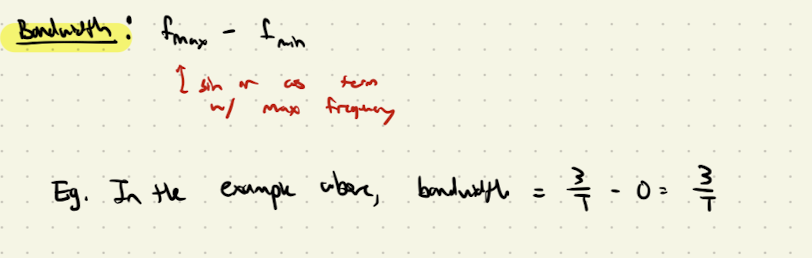 Bandwidth: fmax - fmin
↑ sin or cos term
w/ max frequency
Eg. In the example above, bandwidth = 3/T - 0 = 3/T